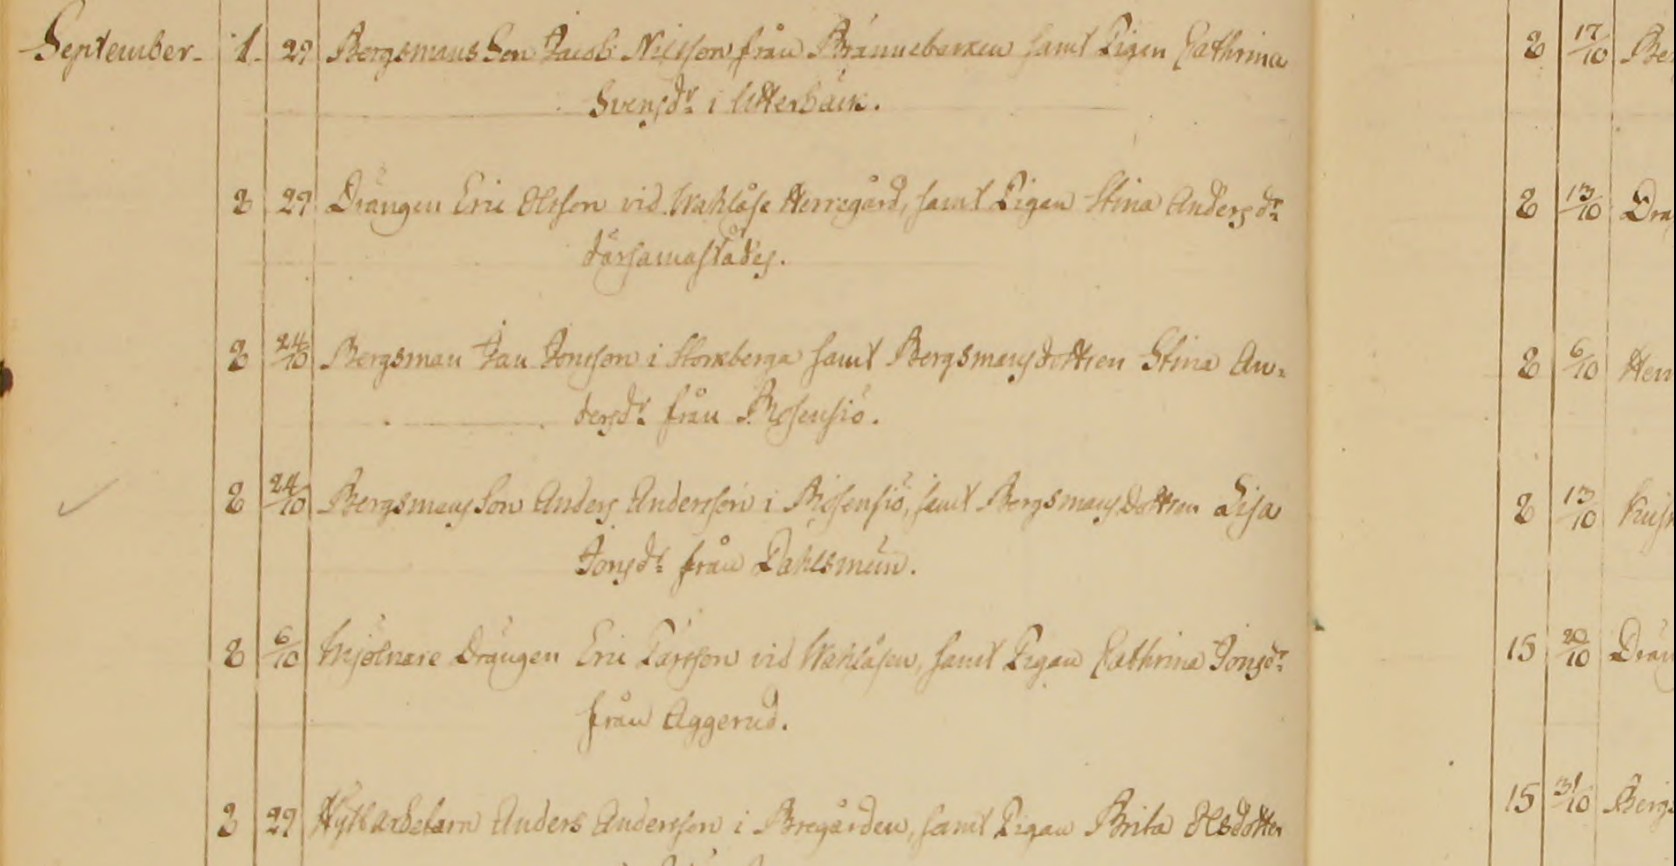 September. 1. 29 Bergsmans Son Jacob Nilsson från Brännebacken samt Pigan Cathrina
Svensdr i Utterbäck.
8 29 Drängen Eric Olsson vid Wahlåse Herregård, samt Pigan Stina Andersdr
därsamastädes.
8 24/10 Bergsman Jan Jonsson i Storberga samt Bergsmansdottren Stina An-
dersdr från Rösensiö.
8 24/10 Bergsmans Son Anders Andersson i Rösensiö, samt Bergsmans Dottren Lisa
Jonsdr från Dahlsmun.
8 6/10 Mjölnare Drängen Eric Pärsson vid Wahlåsen, samt Pigan Cathrina Jonsdr
från Aggerud.
8 29 Hyttarbetarn Anders Andersson i Bregården, samt Pigan Brita Olsdotter
8 17/10 Be
8 13/10 Drä
8 6/10 Herr
8 13/10
15 20/10 Drän
15 31/10 Bergs